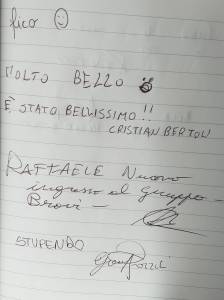 fico
MOLTO BELLO
È STATO BELLISSIMO!!
CRISTIAN BERTOLI
RAFFAELE Nuovo
ingresso al Gruppo -
Bravi -
STUPENDO